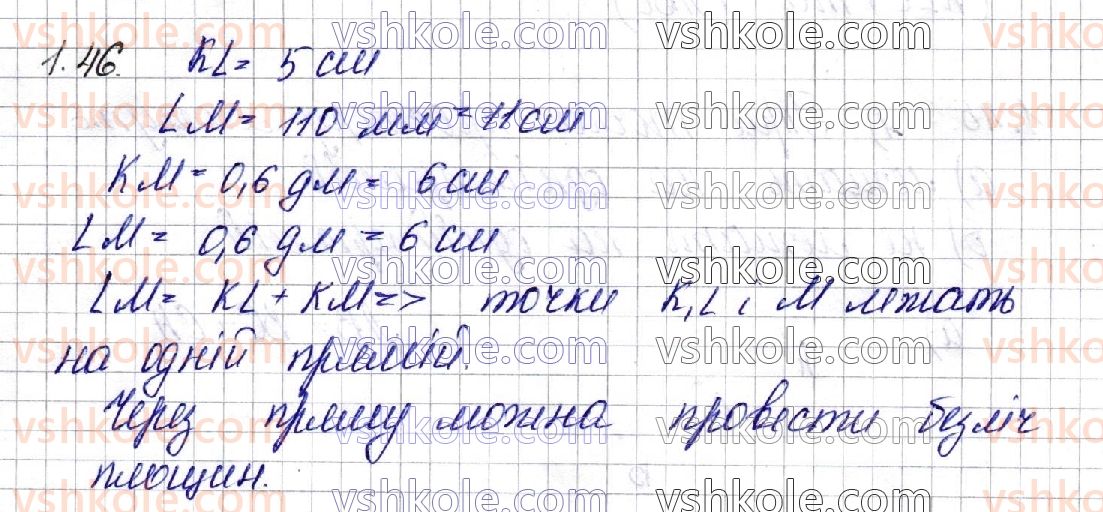 1.46. KL = 5 см
LM = 110 мм = 11 см
KM = 0,6 дм = 6 см
LM = 0,6 дм = 6 см
LM = KL + KM => точки K, L i M лежать
на одній прямій.
Через пряму можна провести безліч
площин.
vshkole.com